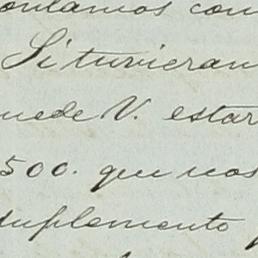 ontamos con
Si tuvieran
uede V. estar
500. que nos
suplemento